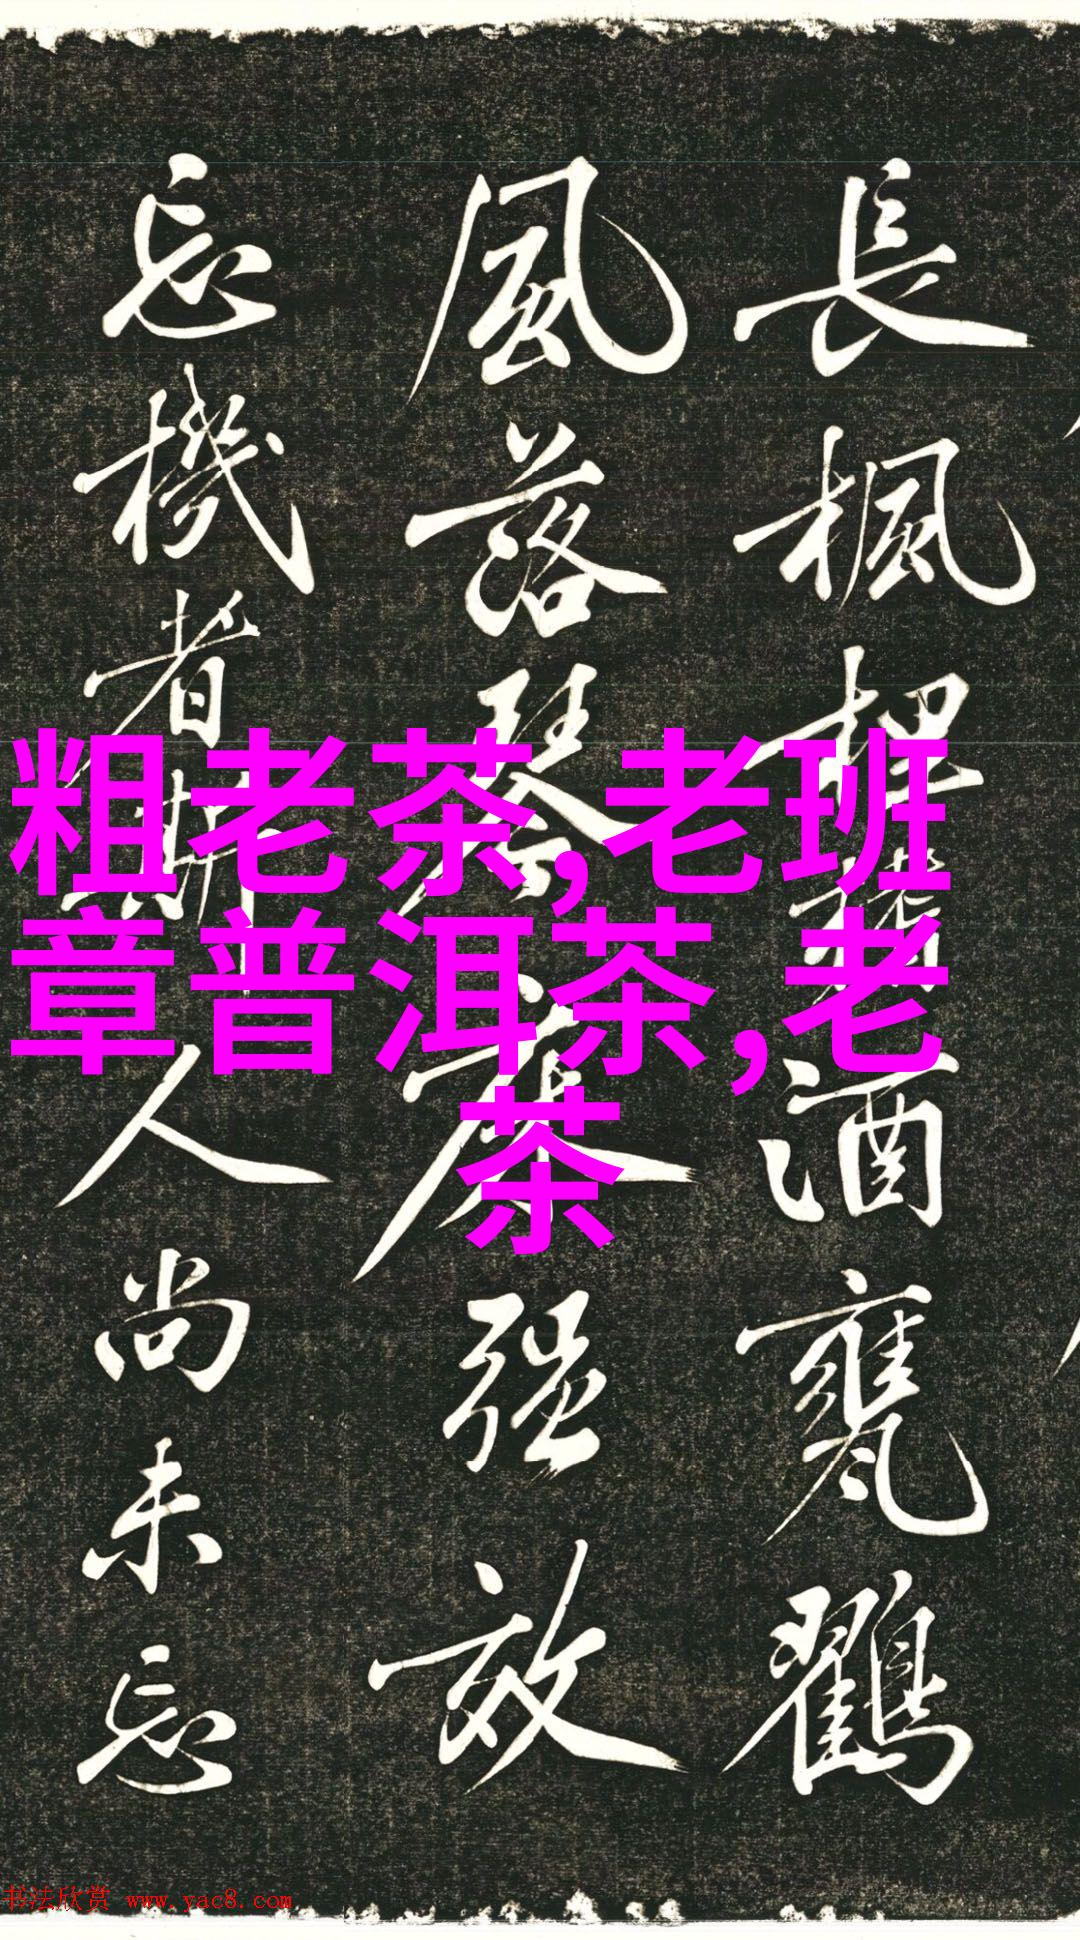 長楓捏薔酒甕鸛
風落琴麻强放
忘機者斯人尚未忘
粗老茶,老班
章普洱茶,老
茶
书法欣赏 www.yac8.com